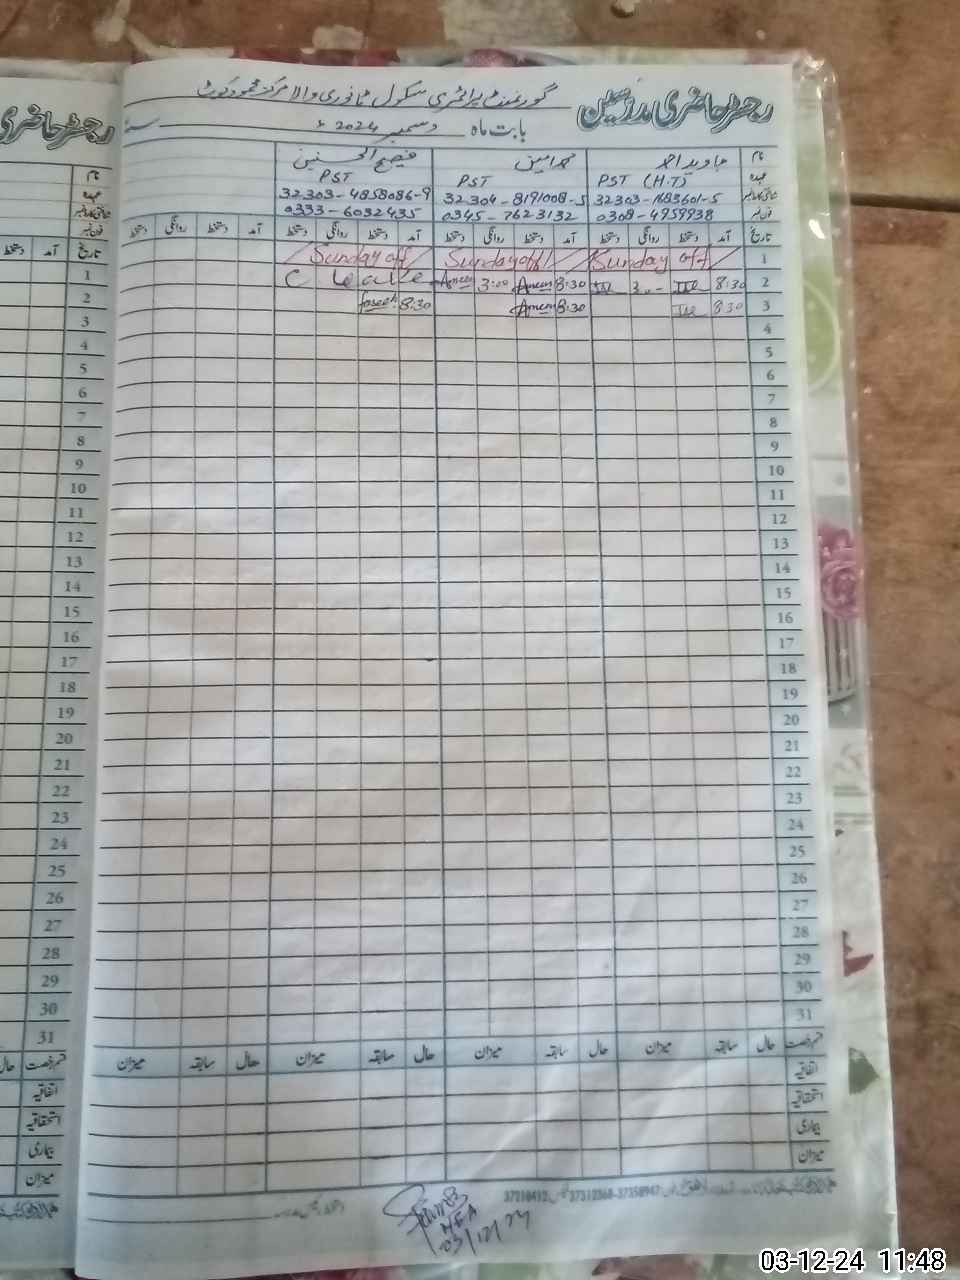 رجسٹر حاضری مدرسین گورنمنٹ پرائمری سکول والا مرکز محمود کوٹ
بابت ماہ دسمبر 2024ء
نام جاوید احمد محمد امین فصیح الحسنین
عہدہ PST (H.T) PST PST
شناختی کارڈ نمبر 32303-1683601-5 32304-8191008-5 32303-4858086-9
فون نمبر 0308-4959938 0345-7623132 0333-6032435
تاریخ آمد دستخط روانگی دستخط آمد دستخط روانگی دستخط آمد دستخط روانگی دستخط آمد دستخط روانگی دستخط
1 Sunday off Sunday off Sunday off
2 8:30 8:30 Ameen 3:00 Ameen C Leave
3 8:30 8:30 Ameen 8:30 faseeh
4
5
6
7
8
9
10
11
12
13
14
15
16
17
18
19
20
21
22
23
24
25
26
27
28
29
30
31
قسم رخصت حال سابقہ میزان حال سابقہ میزان حال سابقہ میزان حال سابقہ میزان
اتفاقیہ
استحقاقیہ
بیماری
میزان
MEA
03/12/24
رجسٹر حاضری
نام
عہدہ
شناختی کارڈ نمبر
فون نمبر
تاریخ آمد دستخط
1
2
3
4
5
6
7
8
9
10
11
12
13
14
15
16
17
18
19
20
21
22
23
24
25
26
27
28
29
30
31
قسم رخصت حال
اتفاقیہ
استحقاقیہ
بیماری
میزان
03-12-24 11:48